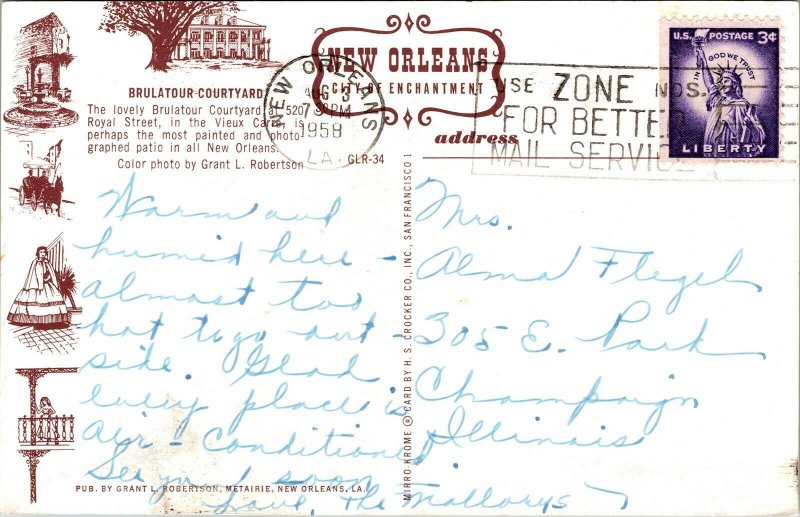 BRULATOUR COURTYARD
The lovely Brulatour Courtyard 520
Royal Street, in the Vieux Carre, is
perhaps the most painted and photo
graphed patio in all New Orleans.
Color photo by Grant L. Robertson
GLR-34
NEW ORLEANS
CITY OF ENCHANTMENT
address
NEW ORLEANS
7 PM
1958
LA.
USE ZONE NOS.
FOR BETTER
MAIL SERVICE
U.S. POSTAGE 3¢
IN GOD WE TRUST
LIBERTY
Warm and
humid here -
almost too
hot to go out-
side. Glad
every place is
air-conditioned
See you soon
Love, the Mallorys
MIRRO-KROME ® CARD BY H. S. CROCKER CO., INC., SAN FRANCISCO 1
Mrs.
Alma Flegel
305 E. Park
Champaign
Illinois
PUB. BY GRANT L. ROBERTSON, METAIRIE, NEW ORLEANS, LA.